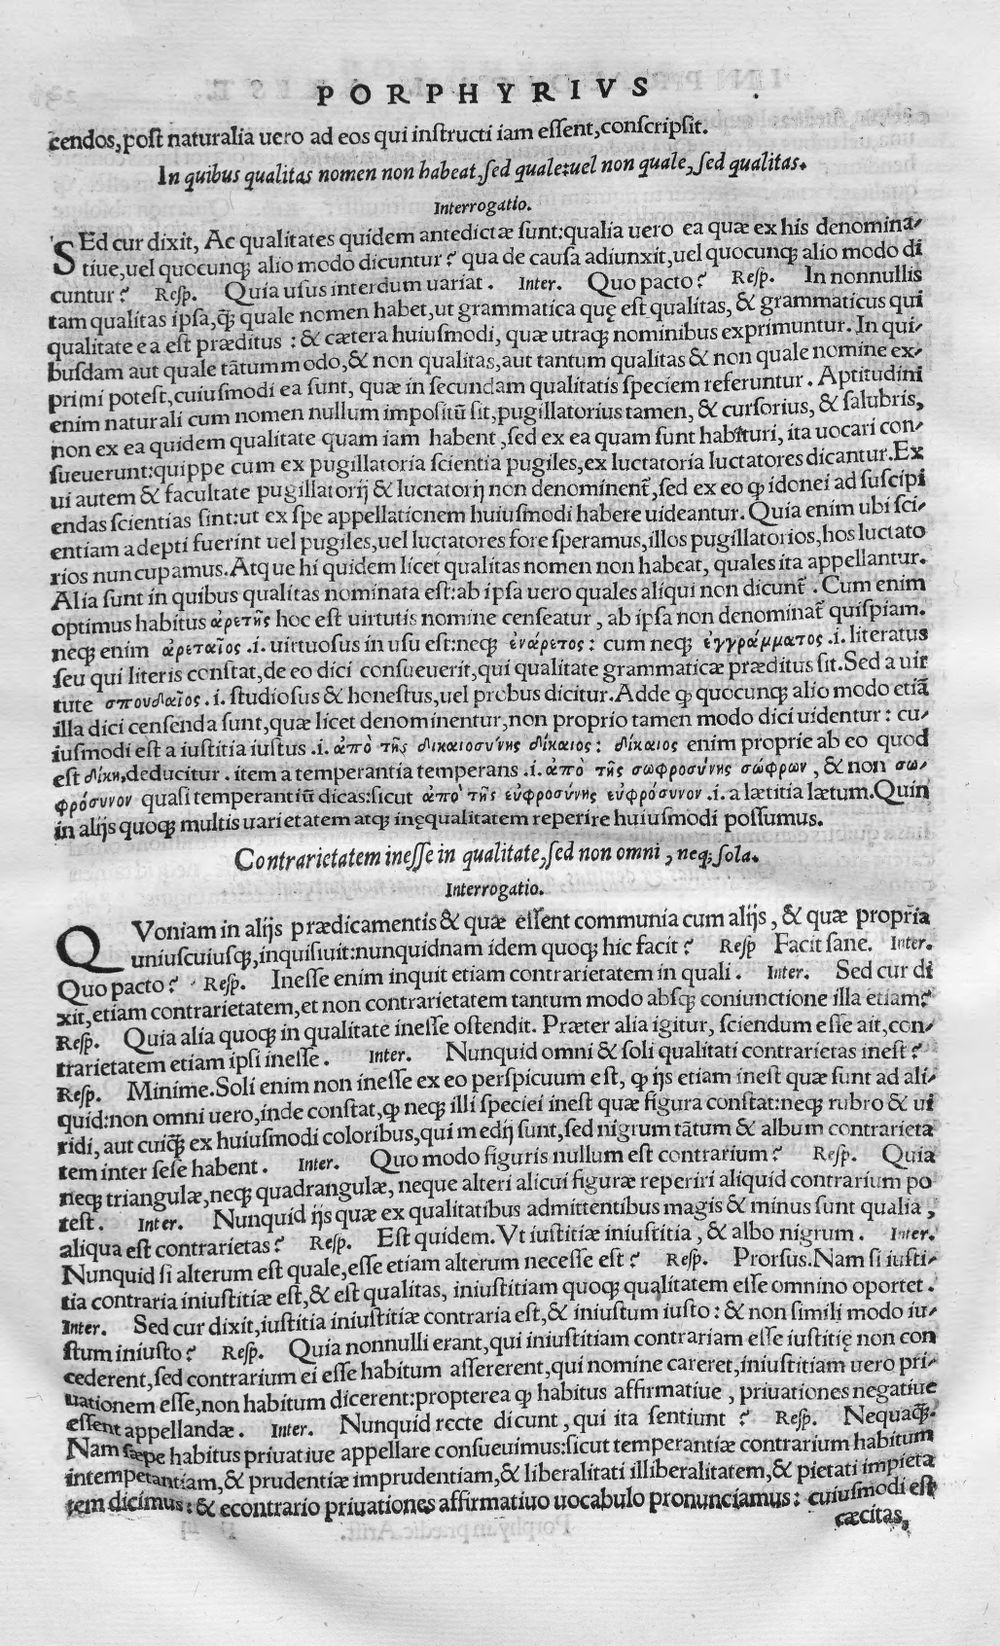 PORPHYRIVS
cendos, post naturalia uero ad eos qui instructi iam essent, conscripsit.
In quibus qualitas nomen non habeat, sed quale: uel non quale, sed qualitas.
Interrogatio.
SEd cur dixit, Ac qualitates quidem antedictæ sunt: qualia uero ea quæ ex his denomina-
tiue, uel quocunq; alio modo dicuntur? qua de causa adiunxit, uel quocunq; alio modo di
cuntur? Resp. Quia usus interdum uariat. Inter. Quo pacto? Resp. In nonnullis
tam qualitas ipsa, q̃ quale nomen habet, ut grammatica quę est qualitas, & grammaticus qui
qualitate ea est præditus: & cætera huiusmodi, quæ utraq; nominibus exprimuntur. In qui-
busdam aut quale tãtummodo, & non qualitas, aut tantum qualitas & non quale nomine ex-
primi potest, cuiusmodi ea sunt, quæ in secundam qualitatis speciem referuntur. Aptitudini
enim naturali cum nomen nullum impositũ sit, pugillatorius tamen, & cursorius, & salubris,
non ex ea quidem qualitate quam iam habent, sed ex ea quam sunt habituri, ita uocari con-
sueuerunt: quippe cum ex pugillatoria scientia pugiles, ex luctatoria luctatores dicantur. Ex
ui autem & facultate pugillatorij & luctatorij non denominent̃, sed ex eo ꝙ idonei ad suscipi
endas scientias sint: ut ex spe appellationem huiusmodi habere uideantur. Quia enim ubi sci-
entiam adepti fuerint uel pugiles, uel luctatores fore speramus, illos pugillatorios, hos luctato
rios nuncupamus. Atque hi quidem licet qualitas nomen non habeat, quales ita appellantur.
Alia sunt in quibus qualitas nominata est: ab ipsa uero quales aliqui non dicunt̃. Cum enim
optimus habitus ἀρετῆς hoc est uirtutis nomine censeatur, ab ipsa non denominat̃ quispiam.
neq; enim ἀρεταῖος .i. uirtuosus in usu est: neq; ἐνάρετος: cum neq; ἐγγράμματος .i. literatus
seu qui literis constat, de eo dici consueuerit, qui qualitate grammaticæ præditus sit. Sed a uir
tute σπουδαῖος .i. studiosus & honestus, uel probus dicitur. Adde ꝙ quocunq; alio modo etiã
illa dici censenda sunt, quæ licet denominentur, non proprio tamen modo dici uidentur: cu-
iusmodi est a iustitia iustus .i. ἀπὸ τῆς δικαιοσύνης δίκαιος: δίκαιος enim proprie ab eo quod
est δίκη, deducitur. item a temperantia temperans .i. ἀπὸ τῆς σωφροσύνης σώφρων, & non σω-
φρόσυνον quasi temperantiũ dicas: sicut ἀπὸ τῆς εὐφροσύνης εὐφρόσυνον .i. a lætitia lætum. Quin
in alijs quoq; multis uarietatem atq; inęqualitatem reperire huiusmodi possumus.
Contrarietatem inesse in qualitate, sed non omni, neq; sola.
Interrogatio.
QVoniam in alijs prædicamentis & quæ essent communia cum alijs, & quæ propria
uniuscuiusq;, inquisiuit: nunquidnam idem quoq; hic facit? Resp Facit sane. Inter.
Quo pacto? Resp. Inesse enim inquit etiam contrarietatem in quali. Inter. Sed cur di
xit, etiam contrarietatem, et non contrarietatem tantum modo absq; coniunctione illa etiam?
Resp. Quia alia quoq; in qualitate inesse ostendit. Præter alia igitur, sciendum esse ait, con-
trarietatem etiam ipsi inesse. Inter. Nunquid omni & soli qualitati contrarietas inest?
Resp. Minime. Soli enim non inesse ex eo perspicuum est, ꝙ ijs etiam inest quæ sunt ad ali-
quid: non omni uero, inde constat, ꝙ neq; illi speciei inest quæ figura constat: neq; rubro & ui
ridi, aut cuiq̃ ex huiusmodi coloribus, qui medij sunt, sed nigrum tãtum & album contrarieta
tem inter sese habent. Inter. Quo modo figuris nullum est contrarium? Resp. Quia
neq; triangulæ, neq; quadrangulæ, neque alteri alicui figuræ reperiri aliquid contrarium po
test. Inter. Nunquid ijs quæ ex qualitatibus admittentibus magis & minus sunt qualia,
aliqua est contrarietas? Resp. Est quidem. Vt iustitiæ iniustitia, & albo nigrum. Inter.
Nunquid si alterum est quale, esse etiam alterum necesse est? Resp. Prorsus. Nam si iusti-
tia contraria iniustitiæ est, & est qualitas, iniustitiam quoq; qualitatem esse omnino oportet.
Inter. Sed cur dixit, iustitia iniustitiæ contraria est, & iniustum iusto: & non simili modo iu-
stum iniusto? Resp. Quia nonnulli erant, qui iniustitiam contrariam esse iustitię non con
cederent, sed contrarium ei esse habitum assererent, qui nomine careret, iniustitiam uero pri-
uationem esse, non habitum dicerent: propterea ꝙ habitus affirmatiue, priuationes negatiue
essent appellandæ. Inter. Nunquid recte dicunt, qui ita sentiunt? Resp. Nequaq̃.
Nam sæpe habitus priuatiue appellare consueuimus: sicut temperantiæ contrarium habitum
intempetantiam, & prudentiæ imprudentiam, & liberalitati illiberalitatem, & pietati impieta
tem dicimus: & econtrario priuationes affirmatiuo uocabulo pronunciamus: cuiusmodi est
cæcitas,